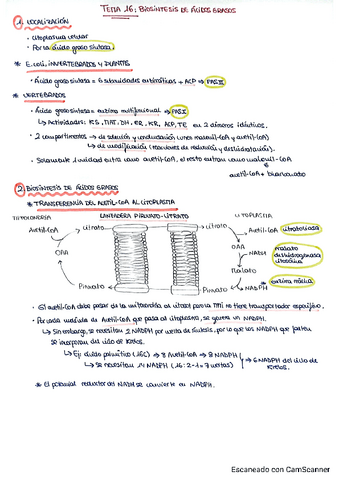 TEMA 16: BIOSÍNTESIS DE ÁCIDOS GRASOS
1. LOCALIZACIÓN
• Citoplasma celular
• Por la ácido graso sintasa.
* E. coli, INVERTEBRADOS Y PLANTAS
• Ácido graso sintasa = 6 actividades enzimáticas + ACP → FAS II
* VERTEBRADOS
• Ácido graso sintasa = enzima multifuncional → FAS I
↳ Actividades: KS, MAT, DH, ER, KR, ACP, TE en 2 dímeros idénticos.
• 2 compartimentos → de selección y condensación (unen malonil-CoA y acetil-CoA)
↳ de modificación (reacciones de reducción y deshidratación).
• Solamente 1 unidad entra como acetil-CoA, el resto entran como malonil-CoA
acetil-CoA + bicarbonato
2. BIOSÍNTESIS DE ÁCIDOS GRASOS
* TRANSFERENCIA DEL ACETIL-CoA AL CITOPLASMA
MITOCONDRIA LANZADERA PIRUVATO-CITRATO CITOPLASMA
Acetil-CoA Citrato Citrato Acetil-CoA citratoliasa
OAA OAA
NADH malato deshidrogenasa citosólica
Malato
enzima málica
Piruvato Piruvato NADPH
• El acetil-CoA debe pasar de la mitocondria al citosol pero la MMI no tiene transportador específico.
• Por cada molécula de Acetil-CoA que pasa al citoplasma, se genera un NADPH.
↳ Sin embargo, se necesitan 2 NADPH por vuelta de síntesis, por lo que los NADPH que faltan
se incorporan del ciclo de Krebs.
↳ Ej: ácido palmítico (16C) → 8 Acetil-CoA → 8 NADPH
↳ Se necesitan 14 NADPH (16:2-1 = 7 vueltas) → 6 NADPH del ciclo de
Krebs.
* El potencial reductor del NADH se convierte en NADPH.
Escaneado con CamScanner